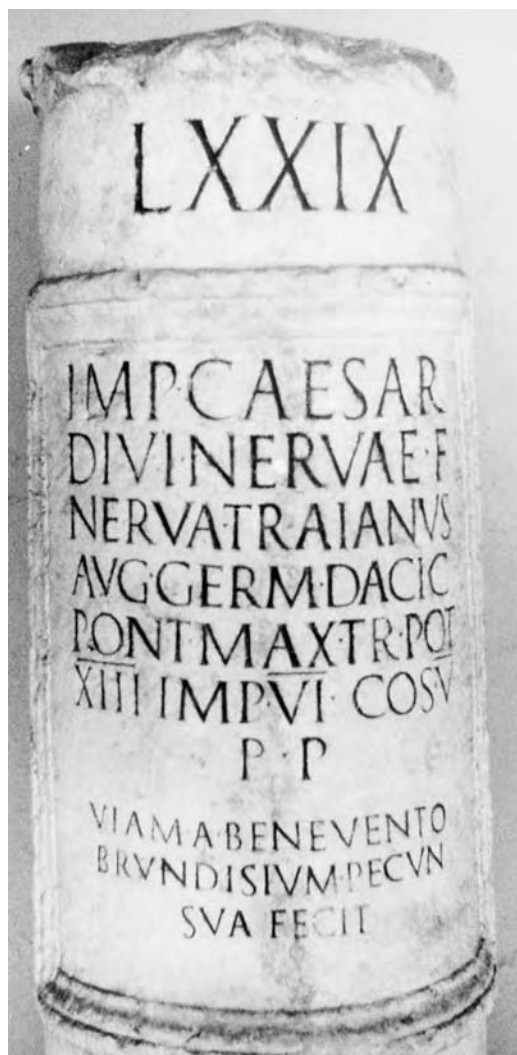 LXXIX
IMP·CAESAR
DIVI·NERVAE·F
NERVA·TRAIANVS
AVG·GERM·DACIC
PONT·MAX·TR·POT
XIII IMP·VI COS·V
P·P
VIAM·A·BENEVENTO
BRVNDISIVM·PECVN
SVA FECIT